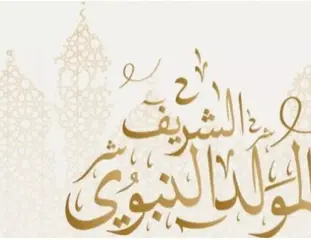 الشريف
المولد النبوي